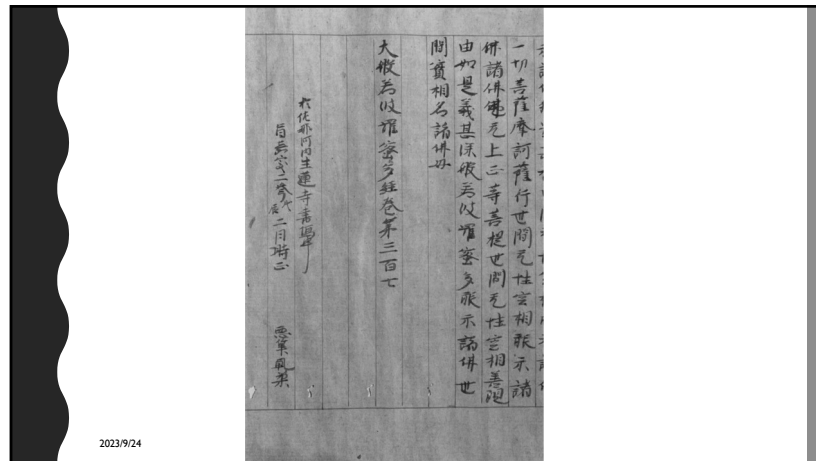 一切菩薩摩訶薩行世間无性空相顕示諸
佛諸佛无上正等菩提世間无性空相善現
由如是義甚深般若波羅蜜多顕示諸佛世
間實相名諸佛母
大般若波羅蜜多経巻第三百七
於佐那河内生蓮寺書
二月時正
悪筆
2023/9/24